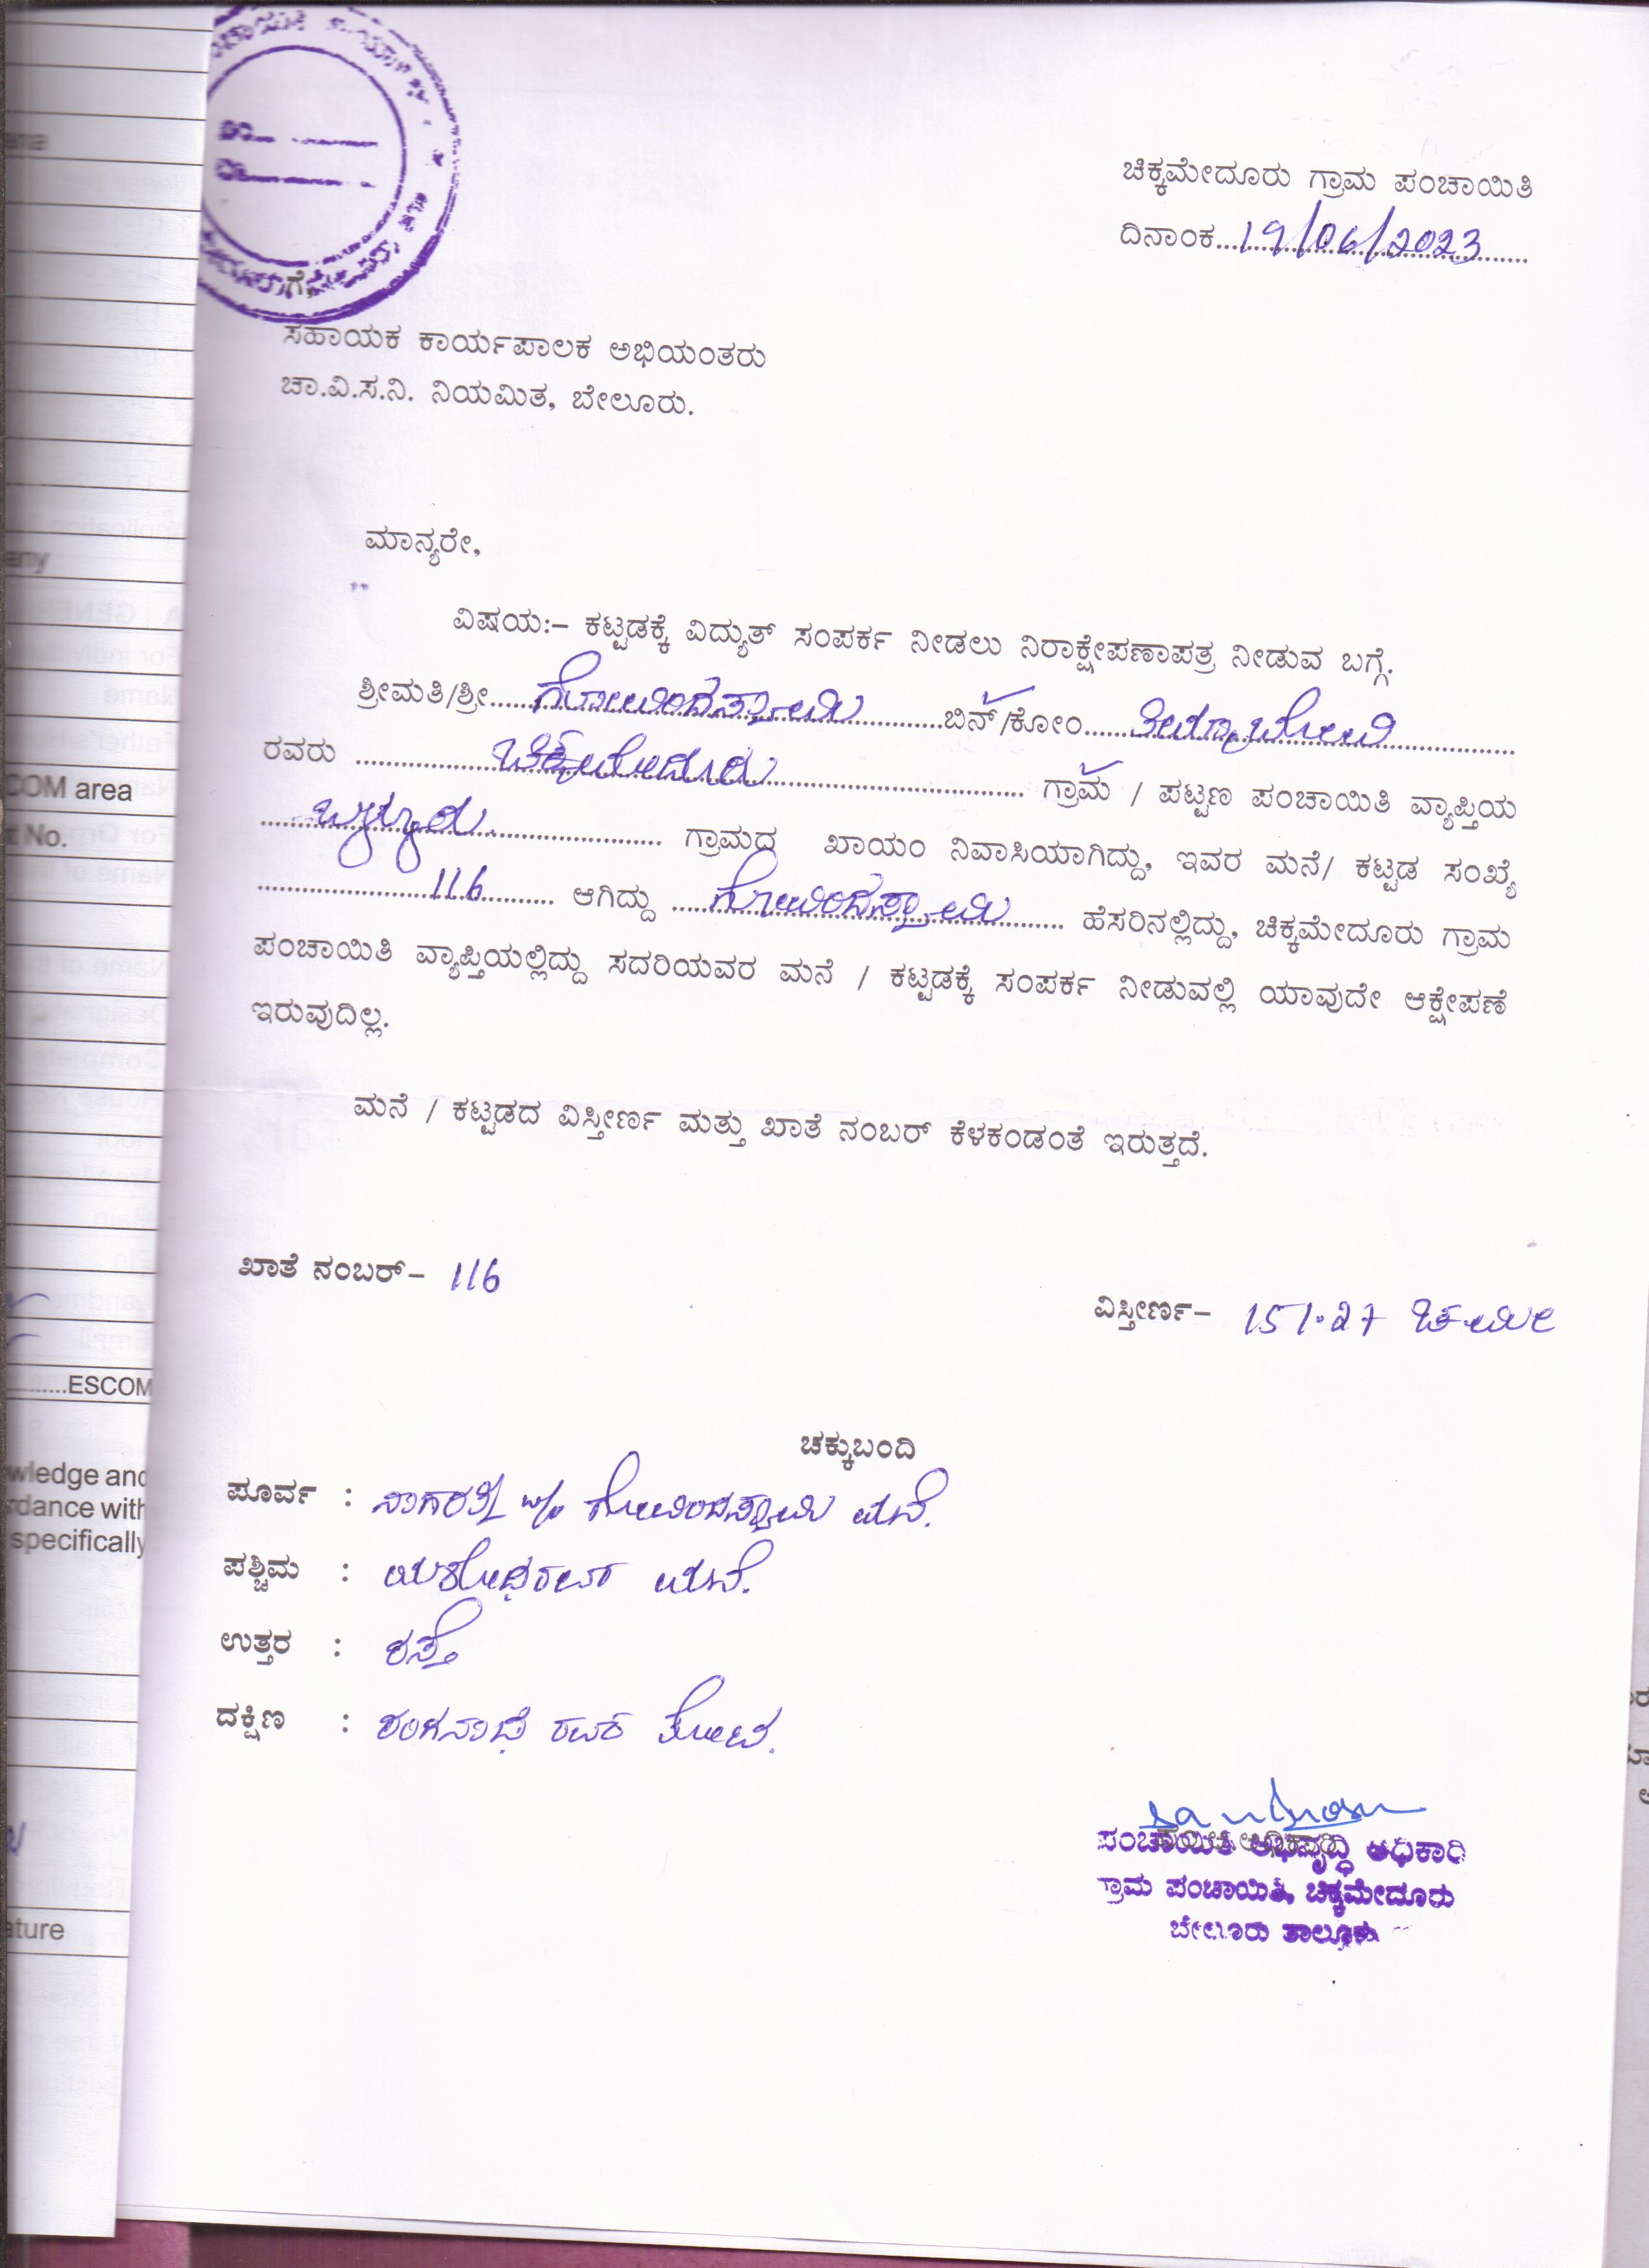 ಚಿಕ್ಕಮೇದೂರು ಗ್ರಾಮ ಪಂಚಾಯಿತಿ
ದಿನಾಂಕ...19/06/2023...
ಗೆ,
ಸಹಾಯಕ ಕಾರ್ಯಪಾಲಕ ಅಭಿಯಂತರು
ಚಾ.ವಿ.ಸ.ನಿ. ನಿಯಮಿತ, ಬೇಲೂರು.
ಮಾನ್ಯರೇ,
ವಿಷಯ:– ಕಟ್ಟಡಕ್ಕೆ ವಿದ್ಯುತ್ ಸಂಪರ್ಕ ನೀಡಲು ನಿರಾಕ್ಷೇಪಣಾಪತ್ರ ನೀಡುವ ಬಗ್ಗೆ.
ಶ್ರೀಮತಿ/ಶ್ರೀ...ಗೋವಿಂದಸ್ವಾಮಿ...ಬಿನ್/ಕೋಂ...
ರವರು ...ಚಿಕ್ಕಮೇದೂರು... ಗ್ರಾಮ / ಪಟ್ಟಣ ಪಂಚಾಯಿತಿ ವ್ಯಾಪ್ತಿಯ
... ಗ್ರಾಮದ ಖಾಯಂ ನಿವಾಸಿಯಾಗಿದ್ದು, ಇವರ ಮನೆ/ ಕಟ್ಟಡ ಸಂಖ್ಯೆ
...116... ಆಗಿದ್ದು ...ಗೋವಿಂದಸ್ವಾಮಿ... ಹೆಸರಿನಲ್ಲಿದ್ದು, ಚಿಕ್ಕಮೇದೂರು ಗ್ರಾಮ
ಪಂಚಾಯಿತಿ ವ್ಯಾಪ್ತಿಯಲ್ಲಿದ್ದು ಸದರಿಯವರ ಮನೆ / ಕಟ್ಟಡಕ್ಕೆ ಸಂಪರ್ಕ ನೀಡುವಲ್ಲಿ ಯಾವುದೇ ಆಕ್ಷೇಪಣೆ
ಇರುವುದಿಲ್ಲ.
ಮನೆ / ಕಟ್ಟಡದ ವಿಸ್ತೀರ್ಣ ಮತ್ತು ಖಾತೆ ನಂಬರ್ ಕೆಳಕಂಡಂತೆ ಇರುತ್ತದೆ.
ಖಾತೆ ನಂಬರ್– 116
ವಿಸ್ತೀರ್ಣ– 151.27 ಚ.ಮೀ
ಚಕ್ಕುಬಂದಿ
ಪೂರ್ವ : ನಾಗರತ್ನ w/o ಗೋವಿಂದಸ್ವಾಮಿ ಮನೆ.
ಪಶ್ಚಿಮ : ಯಶೋಧರವರ ಮನೆ.
ಉತ್ತರ : ರಸ್ತೆ
ದಕ್ಷಿಣ : ರಂಗನಾಥ ರವರ ತೋಟ.
ಪಂಚಾಯಿತಿ ಅಭಿವೃದ್ಧಿ ಅಧಿಕಾರಿ
ಗ್ರಾಮ ಪಂಚಾಯಿತಿ, ಚಿಕ್ಕಮೇದೂರು
ಬೇಲೂರು ತಾಲ್ಲೂಕು
COM area
No.
ESCOM
specifically